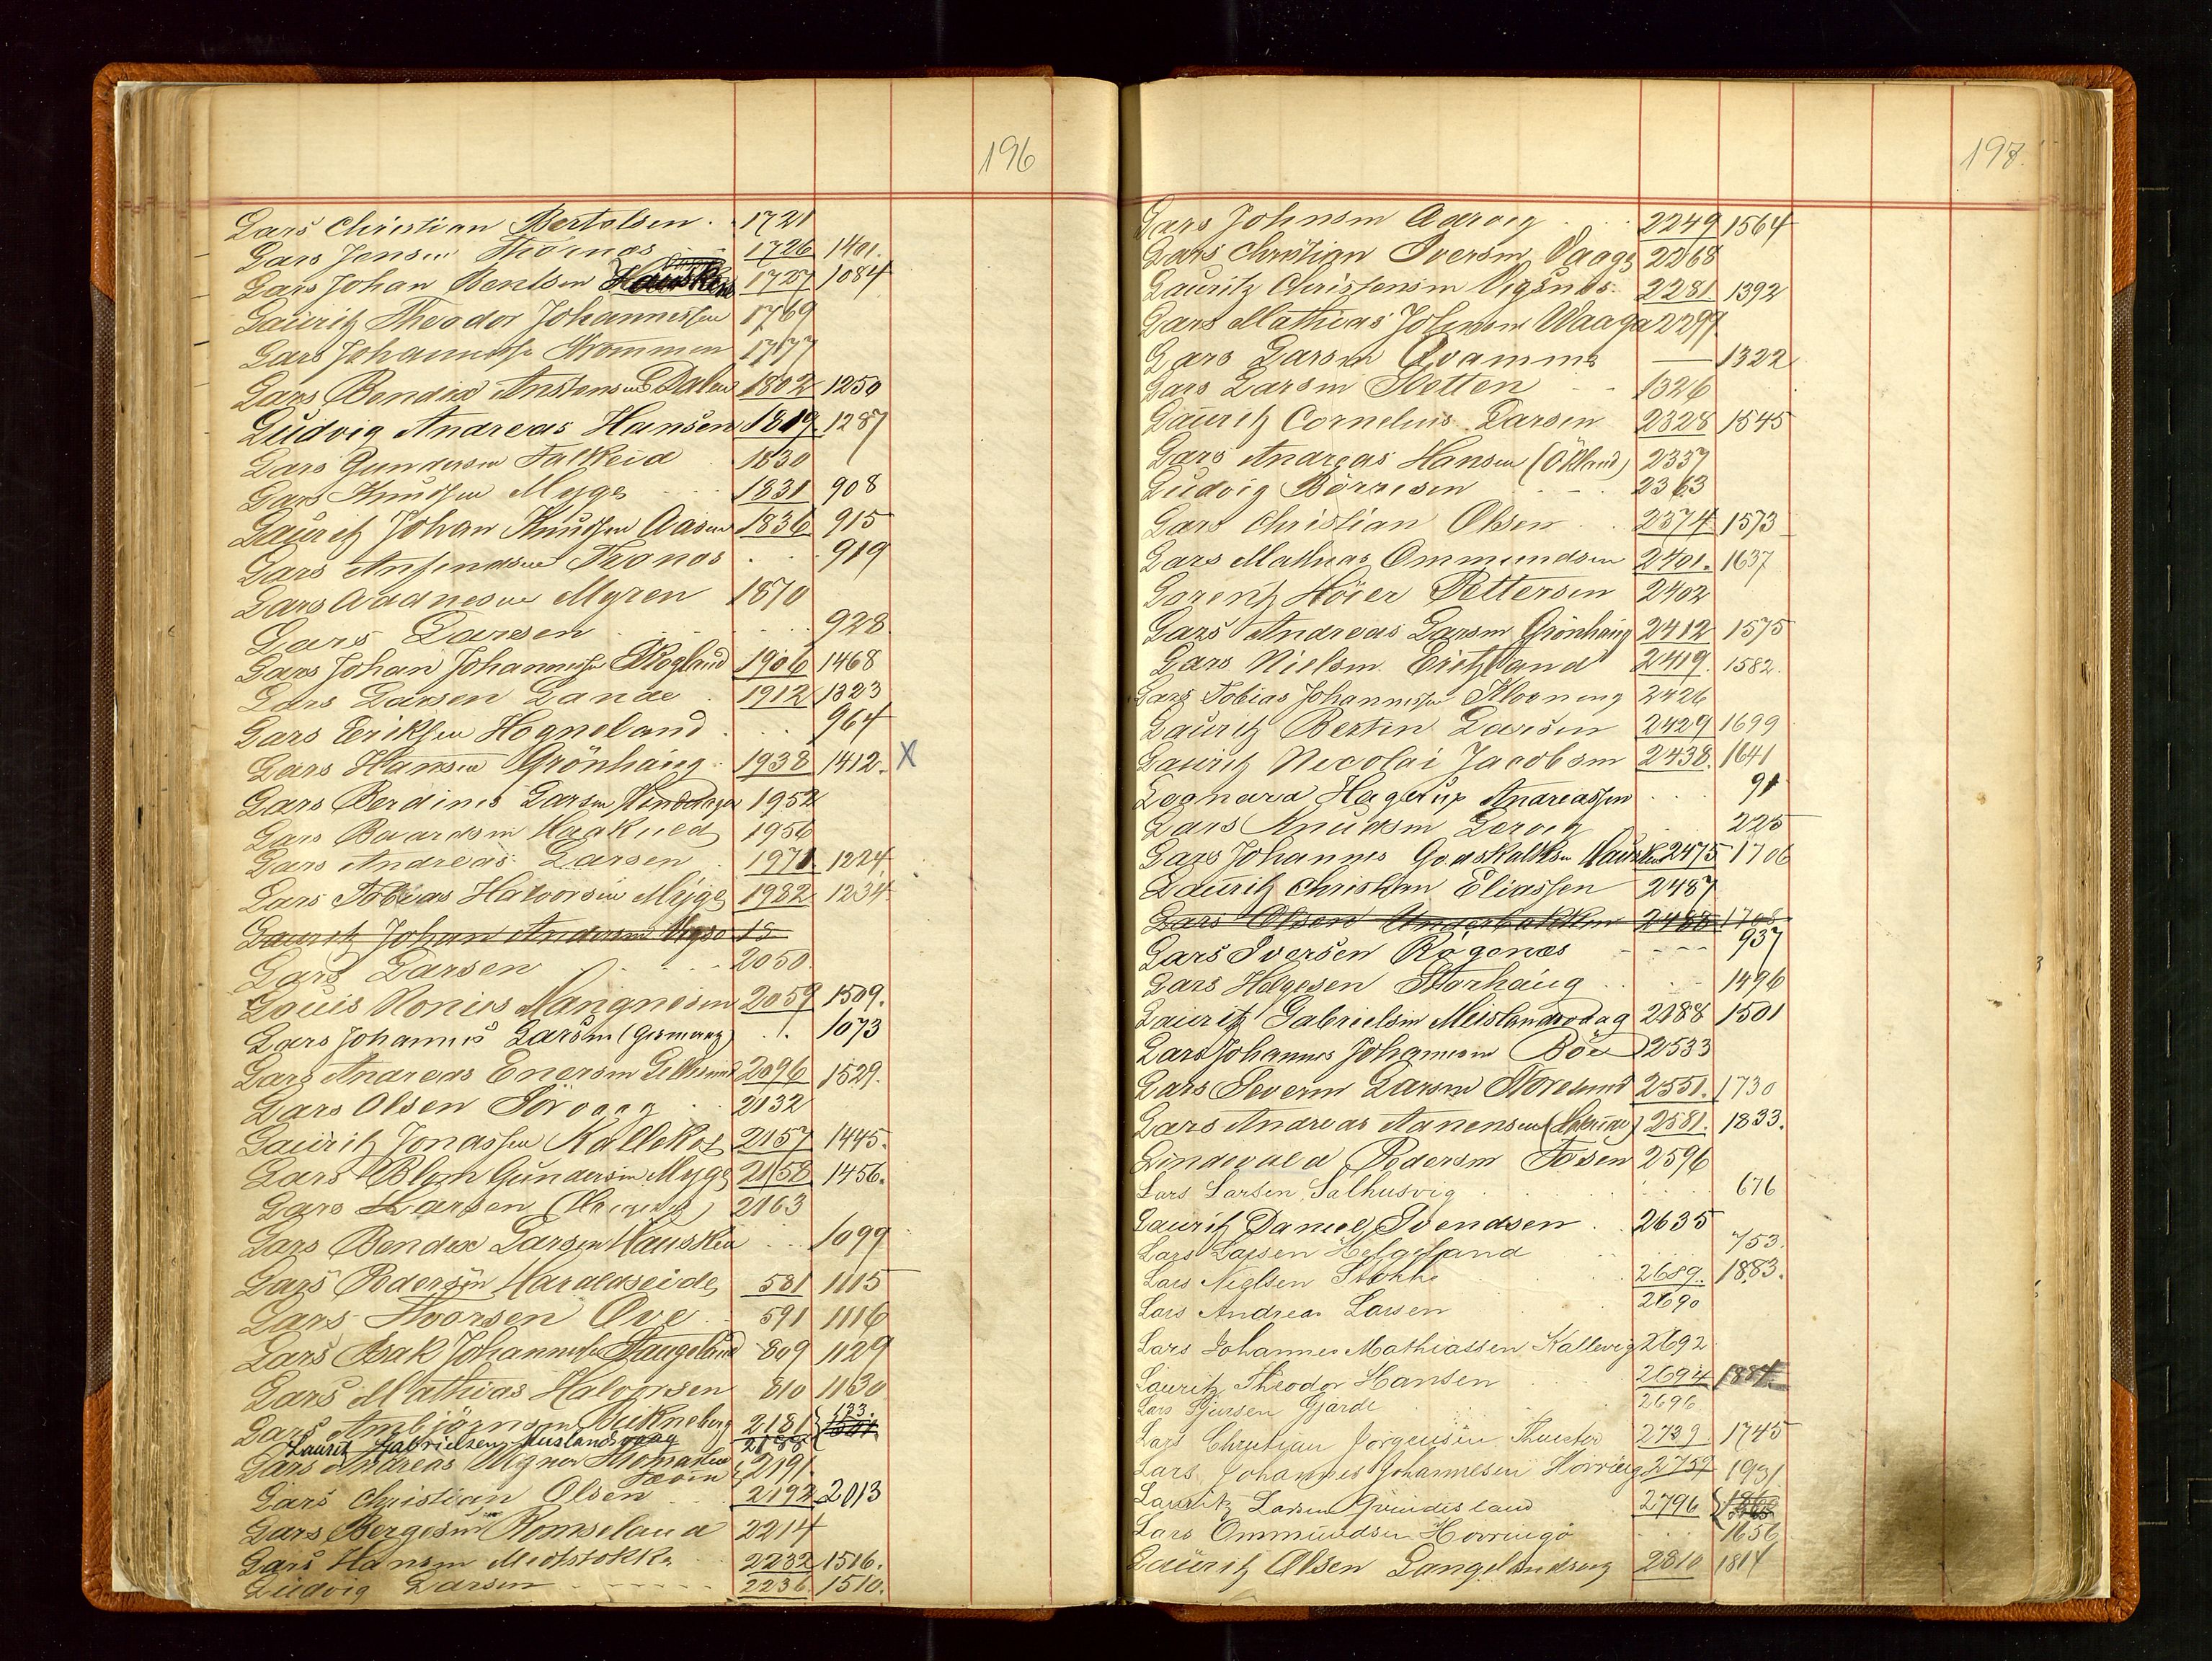 196
Lars Christian Bertelsen . - 1721
Lars Jensen Thornes 1726 1401.
Lars Johan Bentsen 1727 1084
Lauritz Theodor Johannessen 1769
Lars Johannessen Krommen 1777
Lars Bendix Anstensen Dalen 1802 1250
Ludvig Andreas Hansen 1819 1287
Lars Gundersen Falkeid 1830
Lars Knudsen Myge 1831 908
Lauritz Johan Knudsen Aasen 1836 915
Lars Anfindsen Tronos . . 919
Lars Aadnesen Myren 1870
Lars Larsen . . . 928
Lars Johan Johannessen Skogland 1906 1468
Lars Larsen Lande 1912 1323
Lars Eriksen Hogneland . . . 964
Lars Hansen Grönhaug . 1938 1412. X
Lars Berdines Larsen 1952
Lars Baardsen 1956
Lars Andreas Larsen . 1971 1224
Lars Tobias Halvorsen Myge 1982 1234
Lauritz Johan Andersen 15
Lars Larsen . . . 2050
Louis Konius Mangnesen 2059 1509.
Lars Johannes Larsen . . 1073
Lars Andreas Enersen 2096 1529.
Lars Olsen Sörvaag . . 2132
Lauritz Jonassen Kallekot 2157 1445.
Lars Blom Gundersen Myge 2158 1456.
Lars Larsen 2163
Lars Bendix Larsen Hausken . . . 1099
Lars Pedersen Haraldseide 581 1115
Lars Thorsen Ove . 591 1116
Lars Isak Johannessen Haugeland 809 1129
Lars Mathias Halvorsen 810 1130
Lars Anbjörnsen 2181 123.
Lauritz Gabrielsen Meslandsvaag 2188
Lars Andreas Thomassen 2191
Lars Christian Olsen 2192 2013
Lars Bergesen Romseland 2214
Lars Hansen Midtstokke 2232 1516.
Ludvig Larsen - - - - - 2236 1510.
197.
Lars Johnsen Aarvig . . . 2249 1564
Lars Christian Iversen Vaage 2268
Lauritz Christensen Vigsnes . 2281 1392
Lars Mathias Johnsen Waaga 2299
Lars Larsen Qvamme — 1322
Lars Larsen Sletten - - 1326
Lauritz Cornelius Larsen 2328 1545
Lars Andreas Hansen (Ökland) 2337
Ludvig Börresen . - . 2363
Lars Christian Olsen . . 2374 1573
Lars Mathias Ommundsen 2401. 1637
Lorentz Höier Pettersen 2402
Lars Andreas Larsen Grönhaug 2412 1575
Lars Nielsen Eritzland 2419. 1582.
Lars Tobias Johannessen Klovning 2426
Lauritz Bertin Larsen 2429 1699
Lauritz Nicolai Jacobsen 2438. 1641
Legnard Hagerup Andreassen . . . 91
Lars Knudsen Lervig . . 225
Lars Johannes Godskalksen Hausken 2475 1706
Lauritz Christian Eliassen 2487
Lars Olsen Underbakken 2488 1708
Lars Iversen Rögenæs - - - - 937
Lars Helgesen Storhaug . . . - 1496
Lauritz Gabrielsen Meislandsvaag 2188 1501
Lars Johannes Johannesen Böe 2533
Lars Severin Larsen Storesund 2551. 1730
Lars Andreas Aanensen 2581. 1833.
Lindevald Pedersen Tosen 2596
Lars Larsen Salhusvig . . . . . 676
Lauritz Daniel Svendsen . . 2635
Lars Larsen Helgeland . . . . . 753.
Lars Nielsen Stokke . . . 2689. 1883.
Lars Andreas Larsen . . 2690
Lars Johannes Mathiassen Kallevig 2692
Lauritz Theodor Hansen . . . 2694 1884
Lars Sjursen Gjarde . . . 2696
Lars Christian Jörgensen 2729. 1745
Lars Johannes Johannesen 2757 1931
Lauritz Larsen Grindesland 2796
Lars Ommundsen Hovringö . . . 1656
Lauritz Olsen Langelandsvig 2810 1814